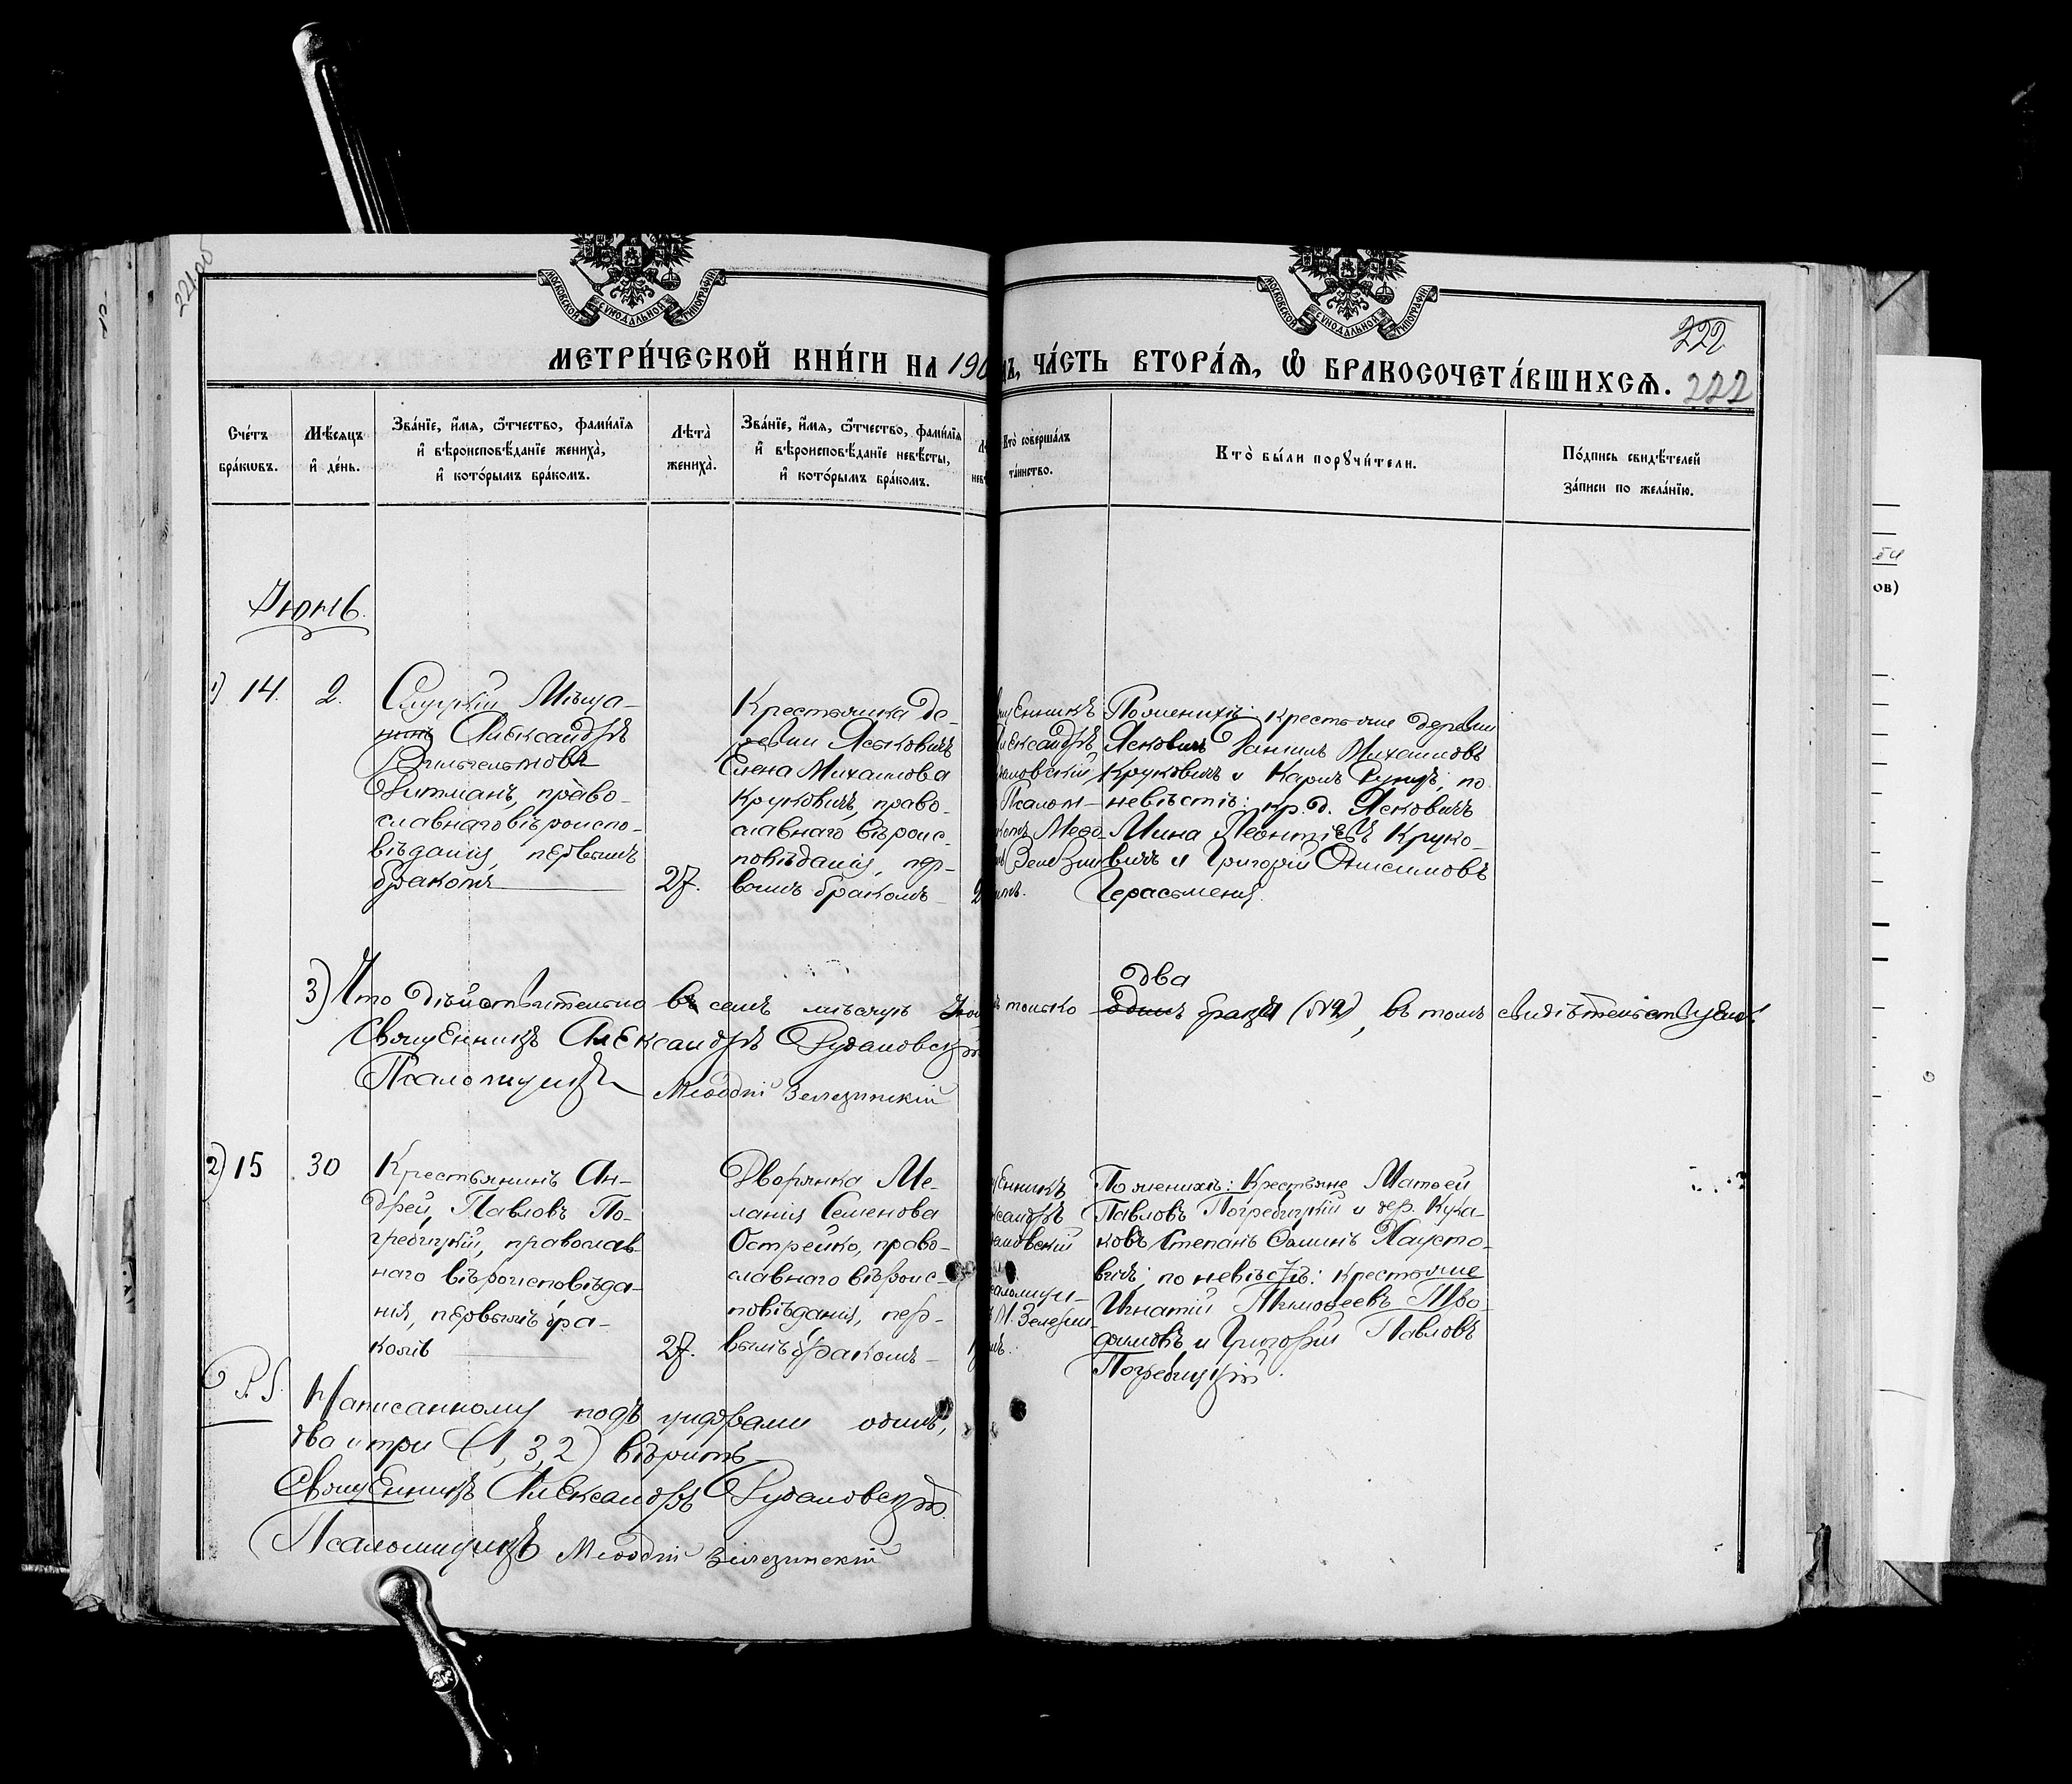 22400
МОСКОВСКОЙ СѴНОДАЛЬНОЙ ТИПОГРАФІИ
МОСКОВСКОЙ СѴНОДАЛЬНОЙ ТИПОГРАФІИ
222
МЕТРИ́ЧЕСКОЙ КНИ́ГИ НА 190
дъ, ЧА́СТЬ ВТОРА́Ѧ, Ѽ БРАКОСОЧЕТА́ВШИХСѦ. 222
Сче́тъ
бра́кѡвъ.
Мѣ́сяцъ
и҆ де́нь.
Зва́нїе, и҆́мя, ѻ҆́тчество, фами́лїя
и҆ вѣроисповѣ́данїе жениха̀,
и҆ кото́рымъ бра́комъ.
Лѣта̀
жениха̀.
Зва́нїе, и҆́мя, ѻ҆́тчество, фами́лїя
и҆ вѣроисповѣ́данїе невѣ́сты,
и҆ кото́рымъ бра́комъ.
Кто̀ соверша́лъ
та́инство.
Кто̀ бы́ли порꙋчи́тели.
По́дпись свидѣ́телей
за́писи по жела́нїю.
Іюнь.
1) 14.
2.
Слуцкій Мѣща-
нинъ Александръ
Вильгельмовъ
Витманъ, право-
славнаго вѣроиспо-
вѣданія, первымъ
бракомъ
27.
Крестьянка де-
ревни Яськовичъ
Елена Михаилова
Круковичъ, право-
славнаго вѣроис-
повѣданія, пер-
вымъ бракомъ
2
щенникъ
лександръ
Псалом-
Меѳо-
Зелезин
имъ.
По женихѣ: Крестьяне деревни
Ясковичъ Даніилъ Михаиловъ
Круковичъ и Карлъ ; по
невѣстѣ: кр. д. Ясковичъ
Мина Леонтіевъ Круко-
вичъ и Григорій Онисимовъ
Герасименя.
3) Что дѣйствительно въ семъ мѣсяцѣ Іюн
только два
одинъ брака (№2), въ томъ свидѣтельствуемъ:
Священникъ Александръ Рудаковскій
Псаломщикъ Меѳодій Зелезинскій
2) 15
30
Крестьянинъ Ан-
дрей Павловъ По-
гребицкій, православ-
наго вѣроисповѣда-
нія, первымъ бра-
комъ
27.
Дворянка Ме-
ланія Семенова
Острейко, право-
славнаго вѣроис-
повѣданія, пер-
вымъ бракомъ
1
щенникъ
ксандръ
ковскій
саломщи-
М. Зелезин
имъ.
По женихѣ: Крестьяне Матѳей
Павловъ Погребицкій и дер. Кука-
ковъ Степанъ Ѳоминъ Хаусто-
вичъ; по невѣстѣ: крестьяне
Игнатій Тимоѳеевъ Тро-
фимовъ и Григорій Павловъ
Погребицкій.
P. S.
Написанному подъ цифрами одинъ,
два и три (1, 3, 2) вѣрить
Священникъ Александръ Рудаковскій
Псаломщикъ Меѳодій Зелезинскій
ов)